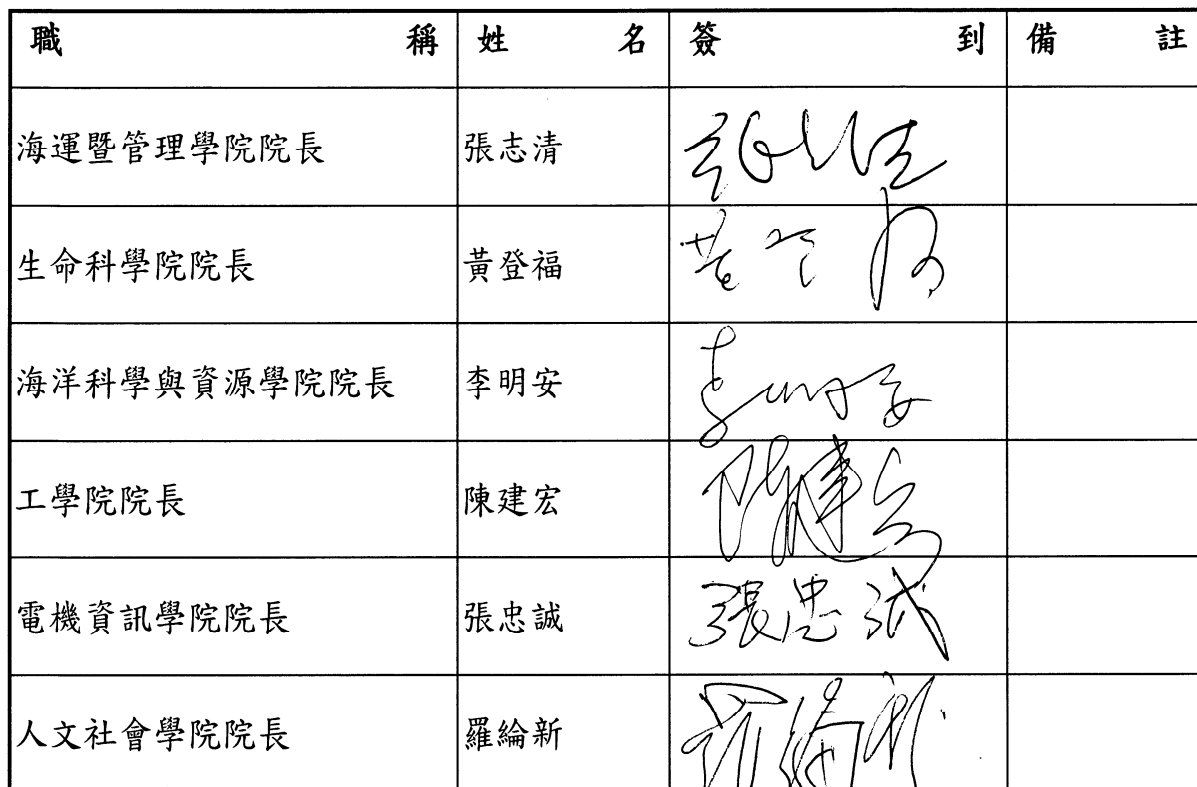 職稱 姓名 簽到 備註
海運暨管理學院院長 張志清 張志清
生命科學院院長 黃登福 黃登福
海洋科學與資源學院院長 李明安 李明安
工學院院長 陳建宏 陳建宏
電機資訊學院院長 張忠誠 張忠誠
人文社會學院院長 羅綸新 羅綸新